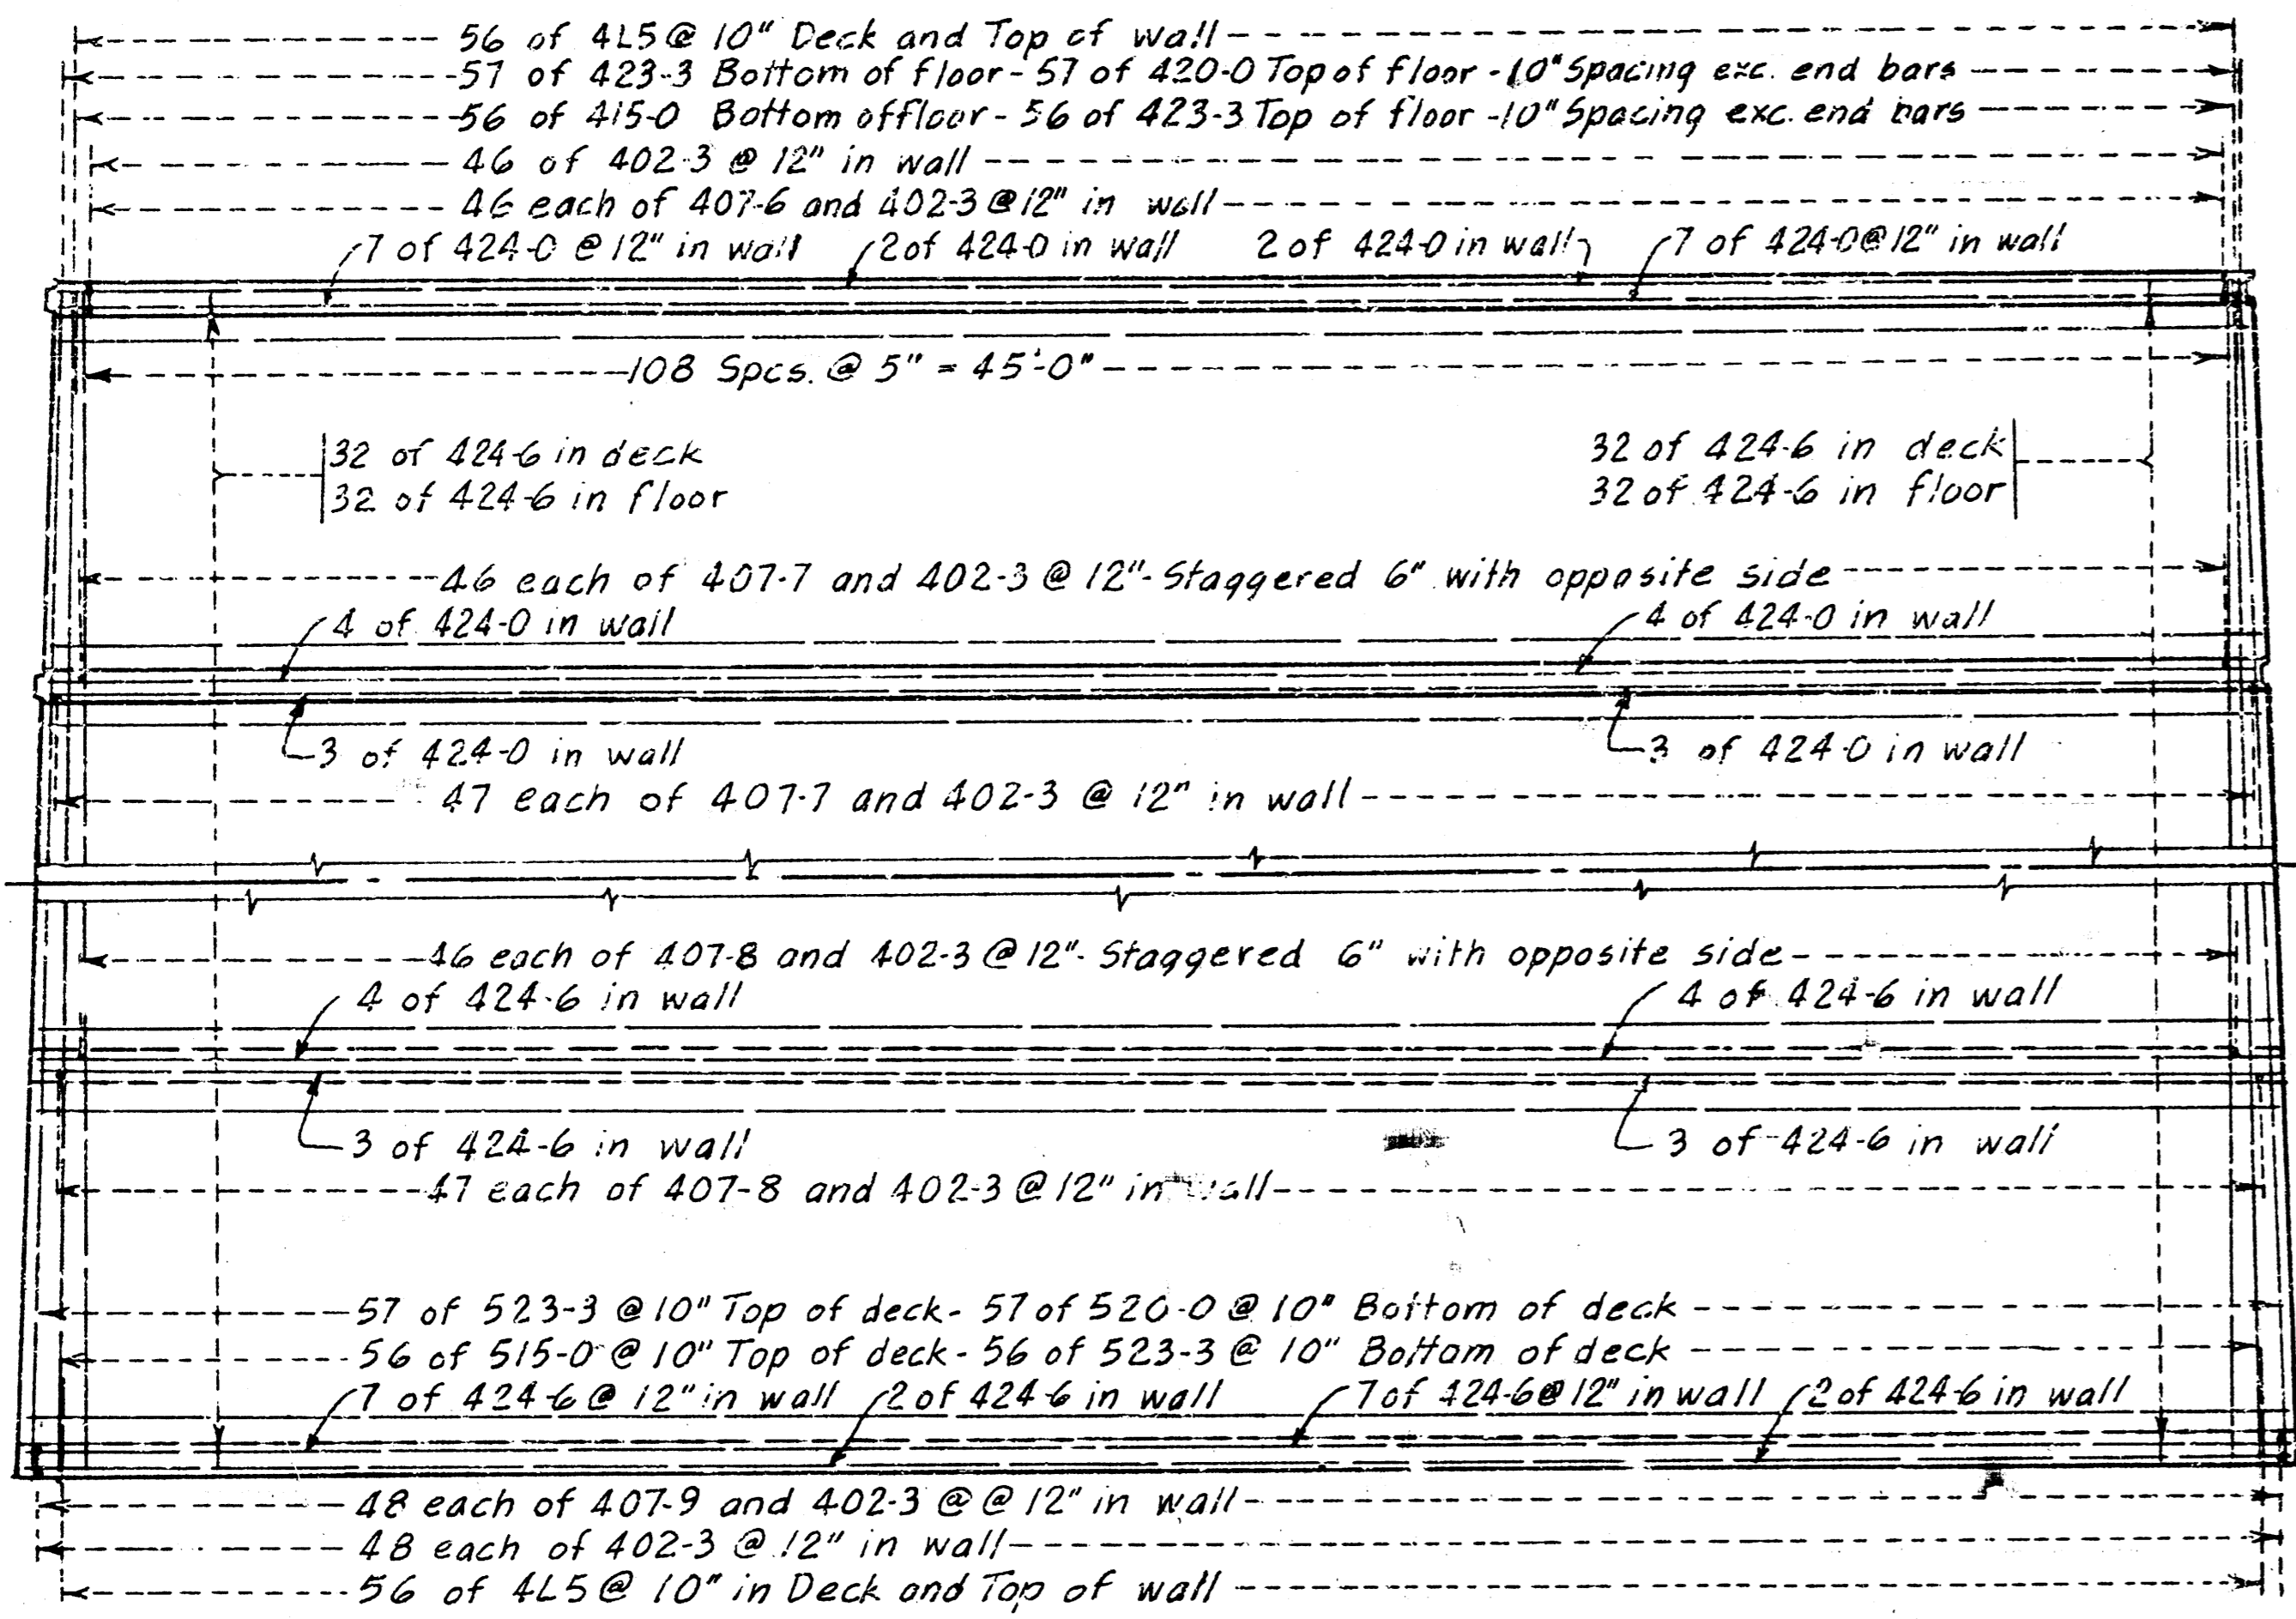 56 of 4L5 @ 10" Deck and Top of wall
57 of 423-3 Bottom of floor - 57 of 420-0 Top of floor - 10" Spacing exc. end bars
56 of 415-0 Bottom of floor - 56 of 423-3 Top of floor - 10" Spacing exc. end bars
46 of 402-3 @ 12" in wall
46 each of 407-6 and 402-3 @ 12" in wall
7 of 424-0 @ 12" in wall 2 of 424-0 in wall 2 of 424-0 in wall 7 of 424-0 @ 12" in wall
108 Spcs. @ 5" = 45'-0"
32 of 424-6 in deck 32 of 424-6 in deck
32 of 424-6 in floor 32 of 424-6 in floor
46 each of 407-7 and 402-3 @ 12" - Staggered 6" with opposite side
4 of 424-0 in wall 4 of 424-0 in wall
3 of 424-0 in wall 3 of 424-0 in wall
47 each of 407-7 and 402-3 @ 12" in wall
46 each of 407-8 and 402-3 @ 12" - Staggered 6" with opposite side
4 of 424-6 in wall 4 of 424-6 in wall
3 of 424-6 in wall 3 of 424-6 in wall
47 each of 407-8 and 402-3 @ 12" in wall
57 of 523-3 @ 10" Top of deck - 57 of 520-0 @ 10" Bottom of deck
56 of 515-0 @ 10" Top of deck - 56 of 523-3 @ 10" Bottom of deck
7 of 424-6 @ 12" in wall 2 of 424-6 in wall 7 of 424-6 @ 12" in wall 2 of 424-6 in wall
48 each of 407-9 and 402-3 @ @ 12" in wall
48 each of 402-3 @ 12" in wall
56 of 4L5 @ 10" in Deck and Top of wall